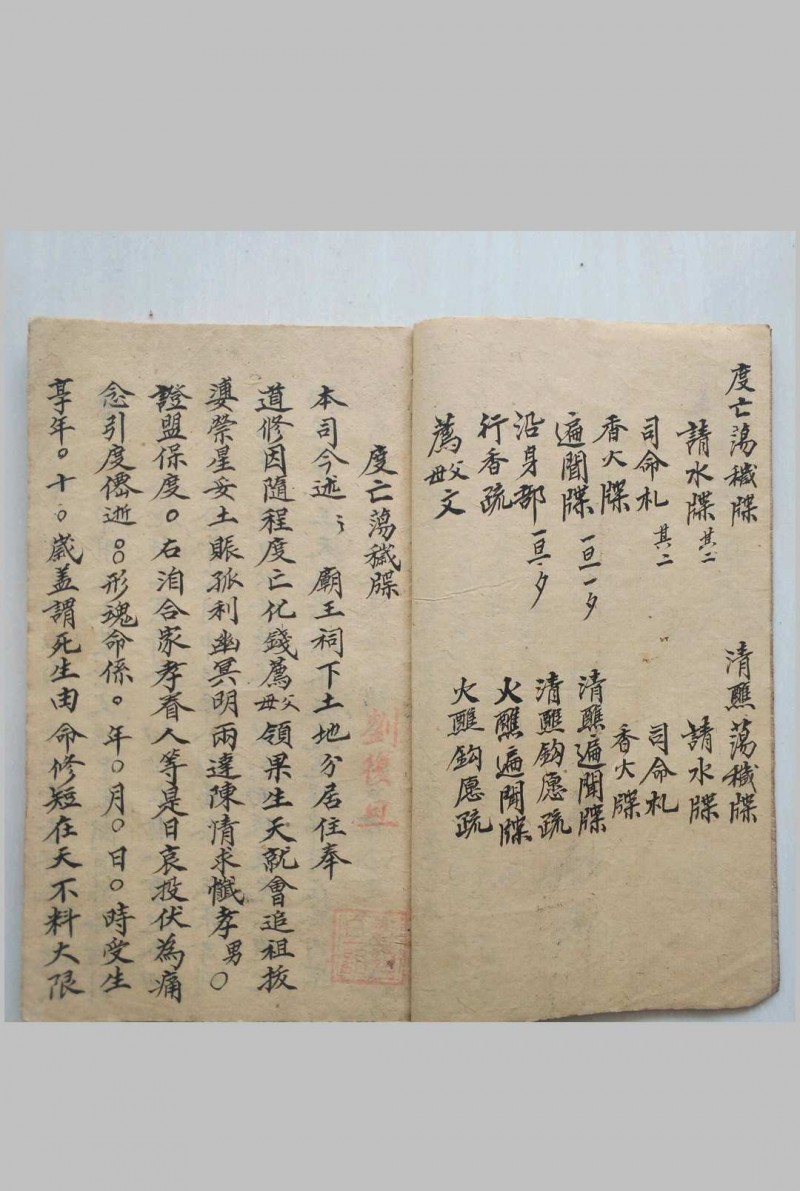 度亡蕩穢牒
請水牒 其二
司命札 其二
香火牒
遍聞牒 一旦一夕
沿身部 一旦一夕
行香疏
薦父母文
清醮蕩穢牒
請水牒
司命札
香火牒
清醮遍聞牒
清醮鈎愿疏
火醮遍聞牒
火醮鈎愿疏
度亡蕩穢牒
本司今述 廟王祠下土地分居住奉
道修因隨程度亡化錢薦父母領果生天就會追祖拔
婆禜星妥土賑孤利幽冥明兩達陳情求懺孝男〇
證盟保度〇右洎合家孝眷人等是日哀投伏為痛
念引度僊逝〇〇形魂命係〇年〇月〇日〇時受生
享年〇十〇歲蓋謂死生由命修短在天不料大限
劉復